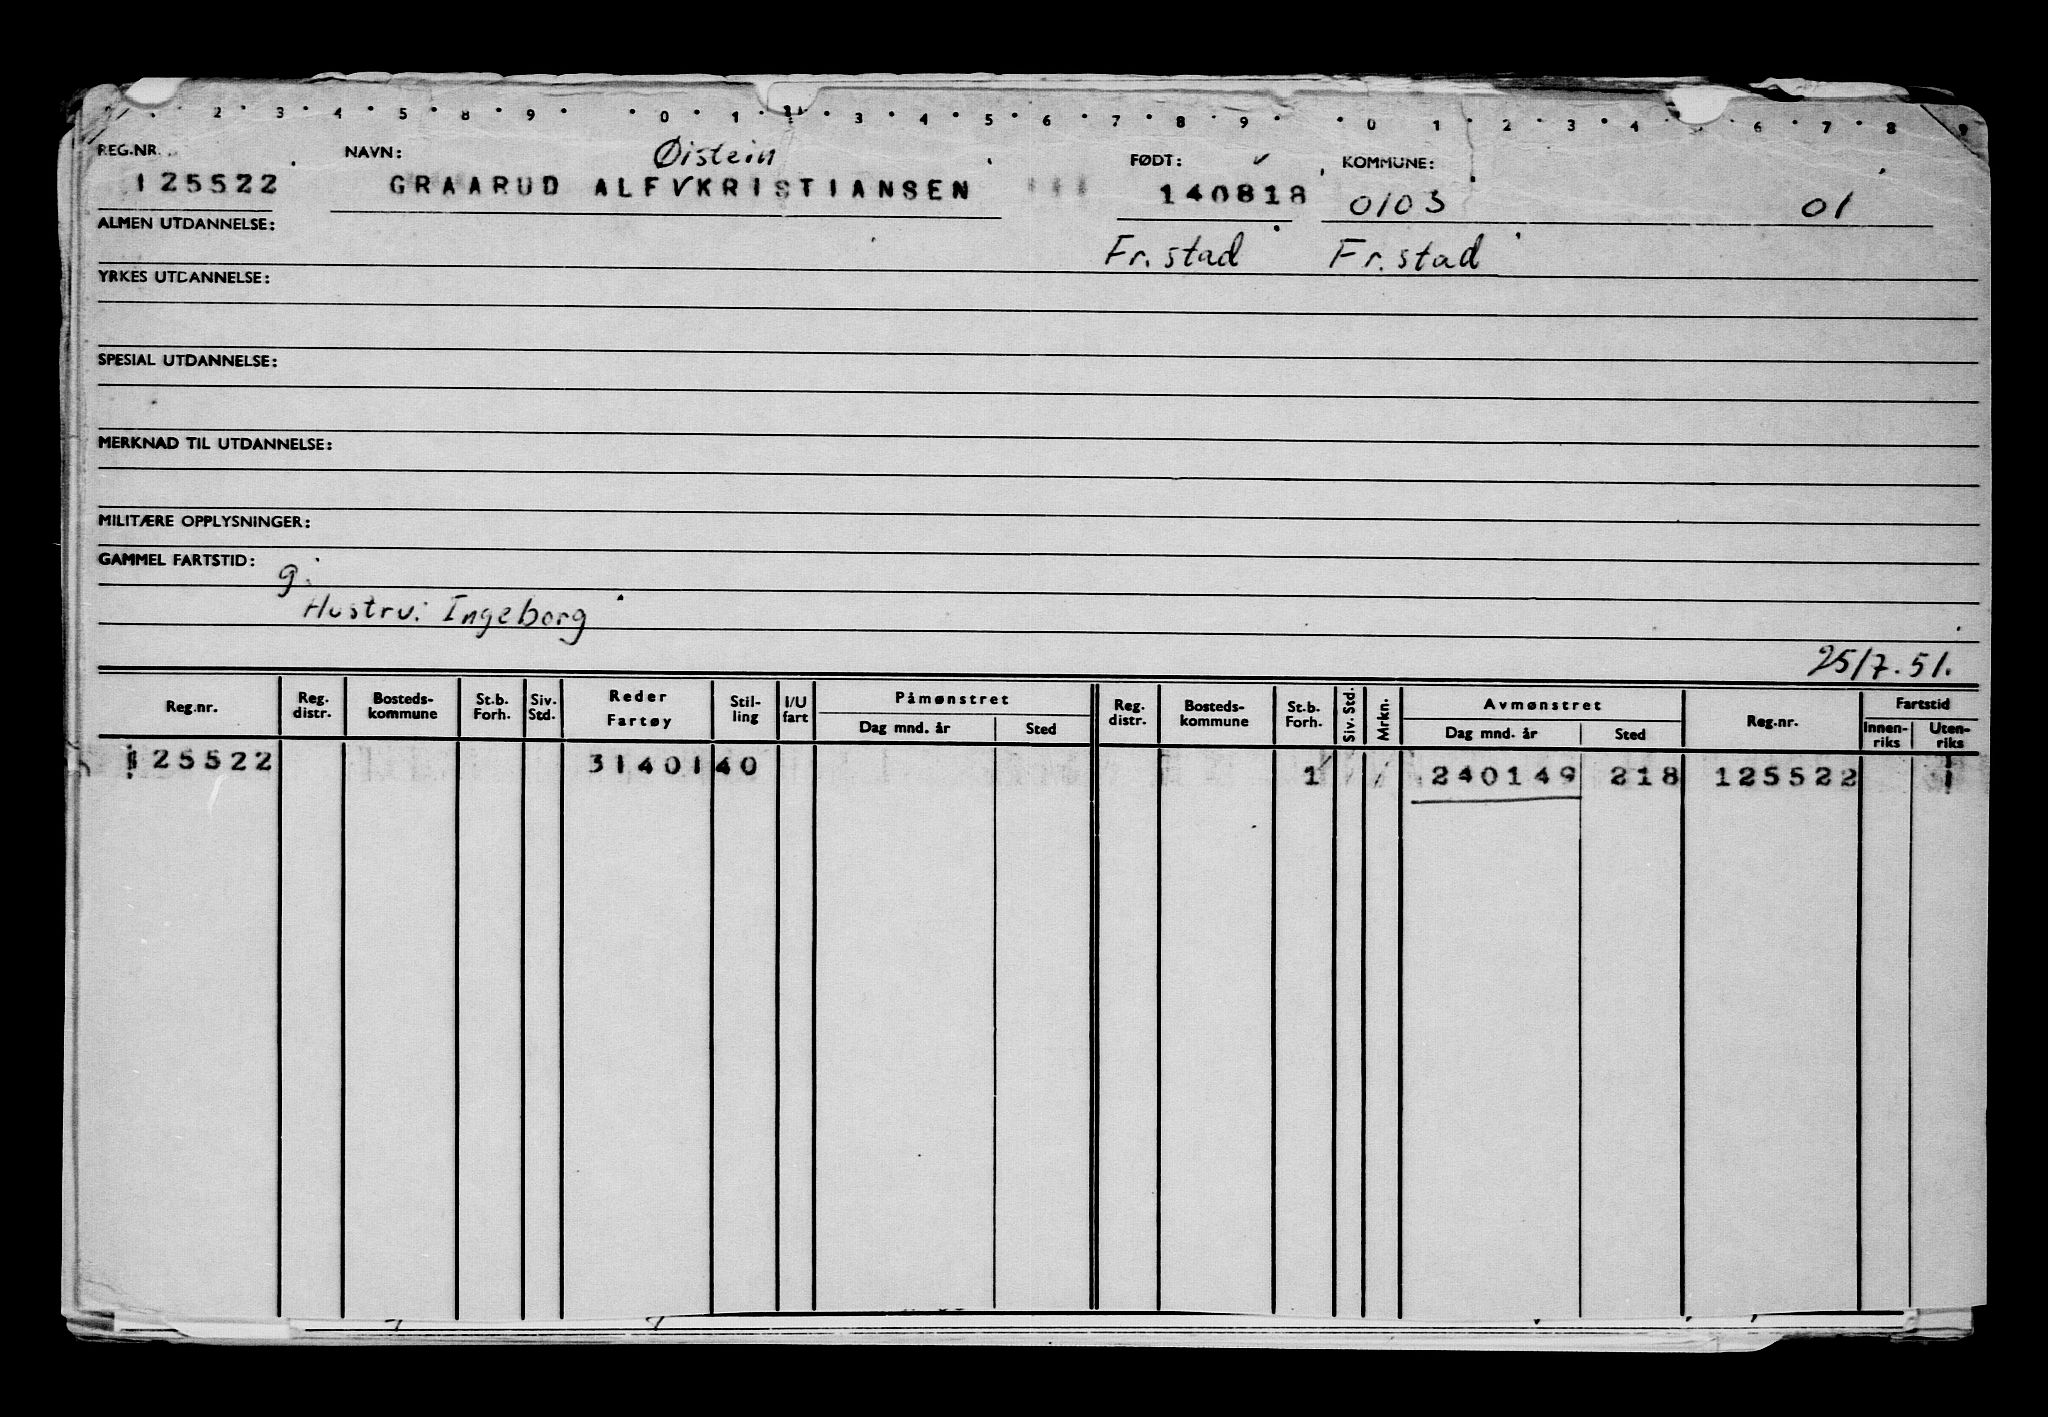 2 3 4 5 6 8 9 0 1 3 4 5 6 7 8 9 0 1 2 3 4 6 7 8 9
REG.NR. NAVN: Øistein FØDT: KOMMUNE:
125522 GRAARUD ALF KRISTIANSEN 140818 0103 01
ALMEN UTDANNELSE: Fr.stad Fr.stad
YRKES UTDANNELSE:
SPESIAL UTDANNELSE:
MERKNAD TIL UTDANNELSE:
MILITÆRE OPPLYSNINGER:
GAMMEL FARTSTID:
g.
Hustru: Ingeborg
25/7.51.
Reg.nr. Reg. distr. Bosteds-kommune St.b. Forh. Siv. Std. Reder Fartøy Stil-ling I/U fart Påmønstret Dag mnd. år Sted Reg. distr. Bosteds-kommune St.b. Forh. Siv. Std. Mrkn. Avmønstret Dag mnd. år Sted Reg.nr. Fartstid Innen-riks Uten-riks
125522 3140140 1 240149 218 125522 1